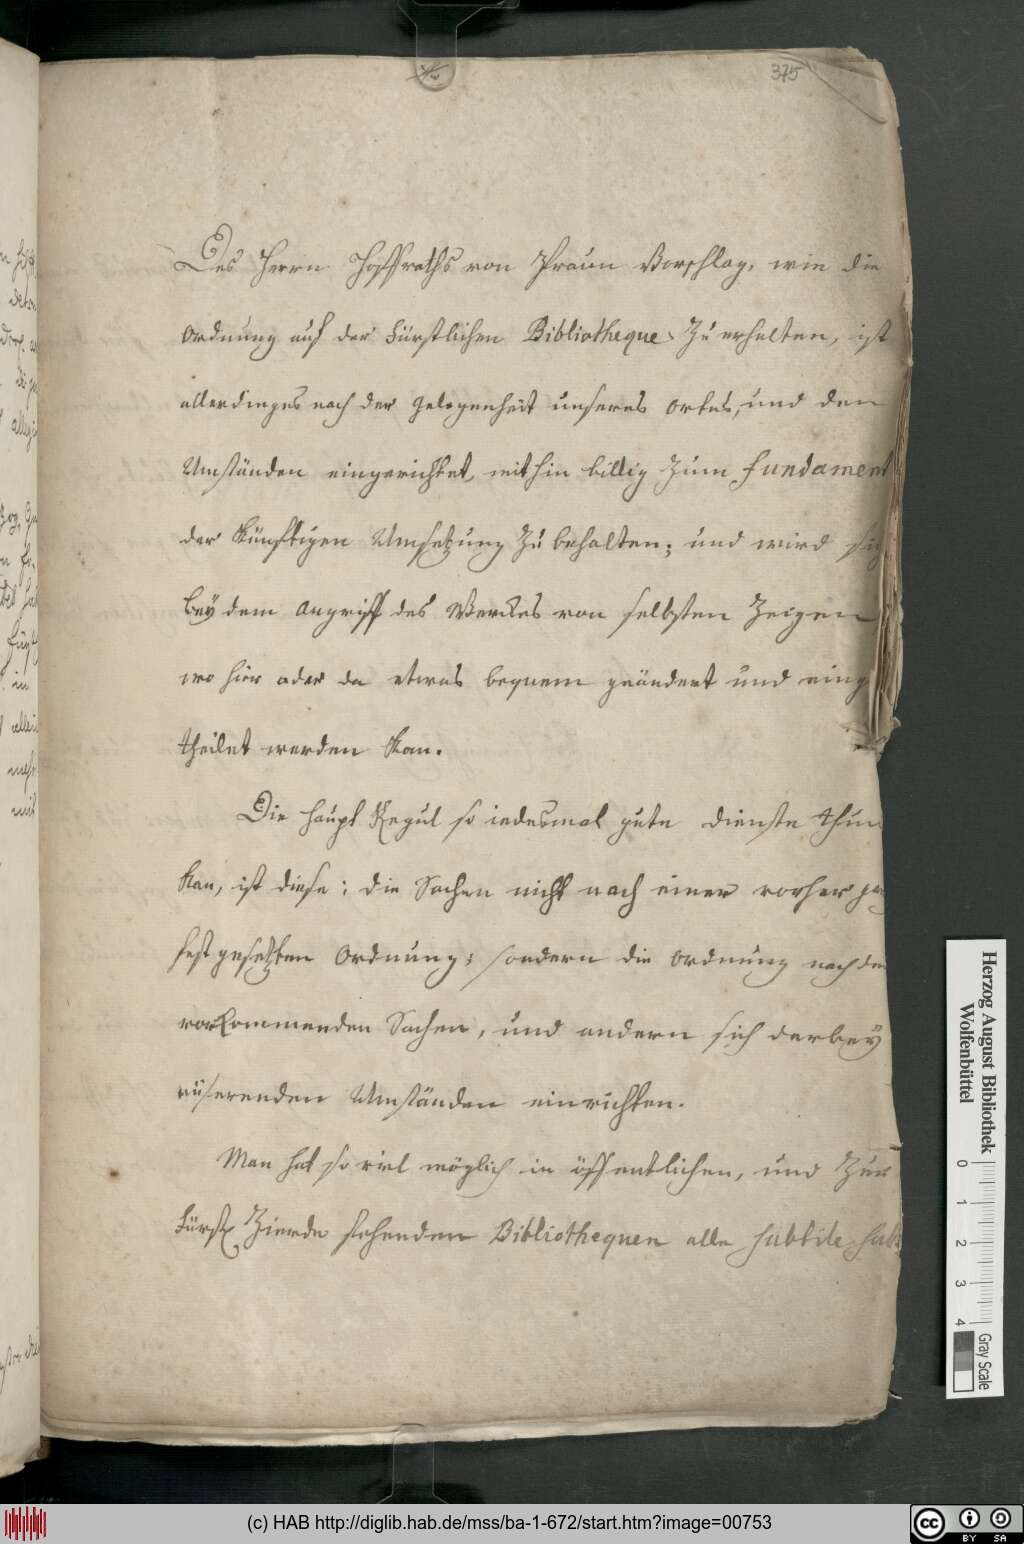 375
Des Herrn Hoffraths von Praun Vorschlag, wie die
Ordnung auf der Fürstlichen Bibliotheque zu erhalten, ist
allerdinges nach der gelegenheit unseres Ortes, und den
Umständen eingerichtet, mithin billig zum Fundament
der künftigen Umsetzung zu behalten; und wird
bey dem Angriff des Werckes von selbsten zeigen
wo hier oder da etwas bequem geändert und einge
theilet werden kan.
Die haupt Regul so iedesmal gute dienste thun
kan, ist diese: die Sachen nicht nach einer vorher
fest gesetzten Ordnung; sondern die Ordnung nach den
vorkommenden Sachen, und andern sich darbey
eüserenden Umständen einrichten.
Man hat so viel möglich in öffentlichen, und zur
Fürstl. Zierde stehenden Bibliothequen alle subtile
Herzog August Bibliothek
Wolfenbüttel
0 1 2 3 4
Gray Scale
(c) HAB http://diglib.hab.de/mss/ba-1-672/start.htm?image=00753
cc BY SA